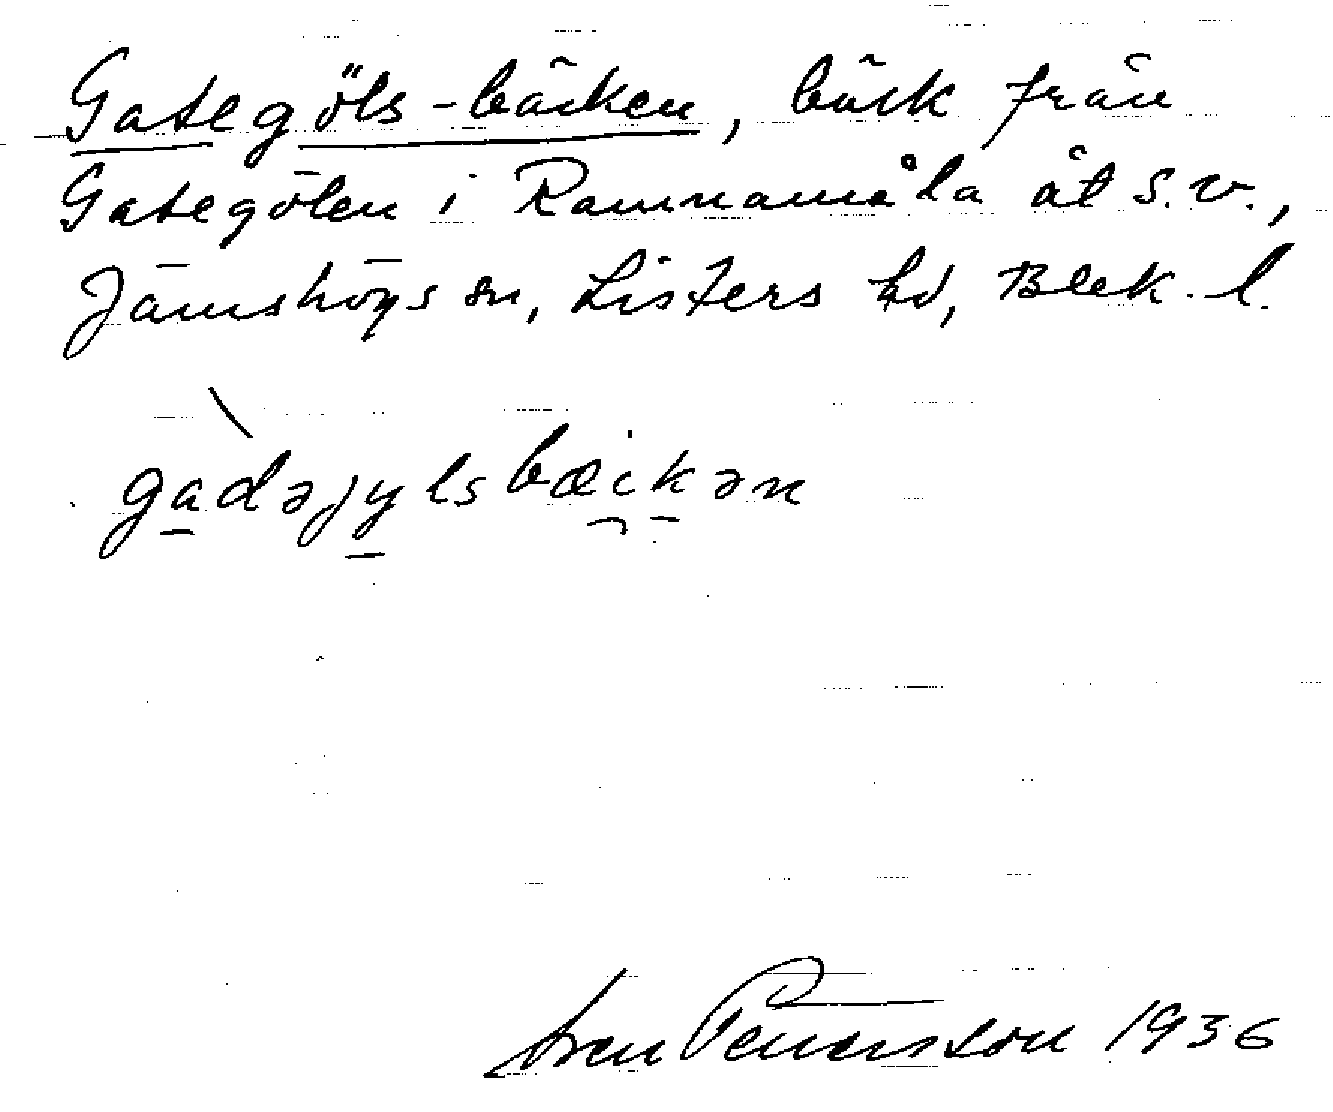 Gategöls-bäcken, bäck från
Gategölen i Ramnamåla åt s.v.,
Jämshögs sn, Listers hd, Blek. l.
gadəjylsbæikən
Sven Petersson 1936